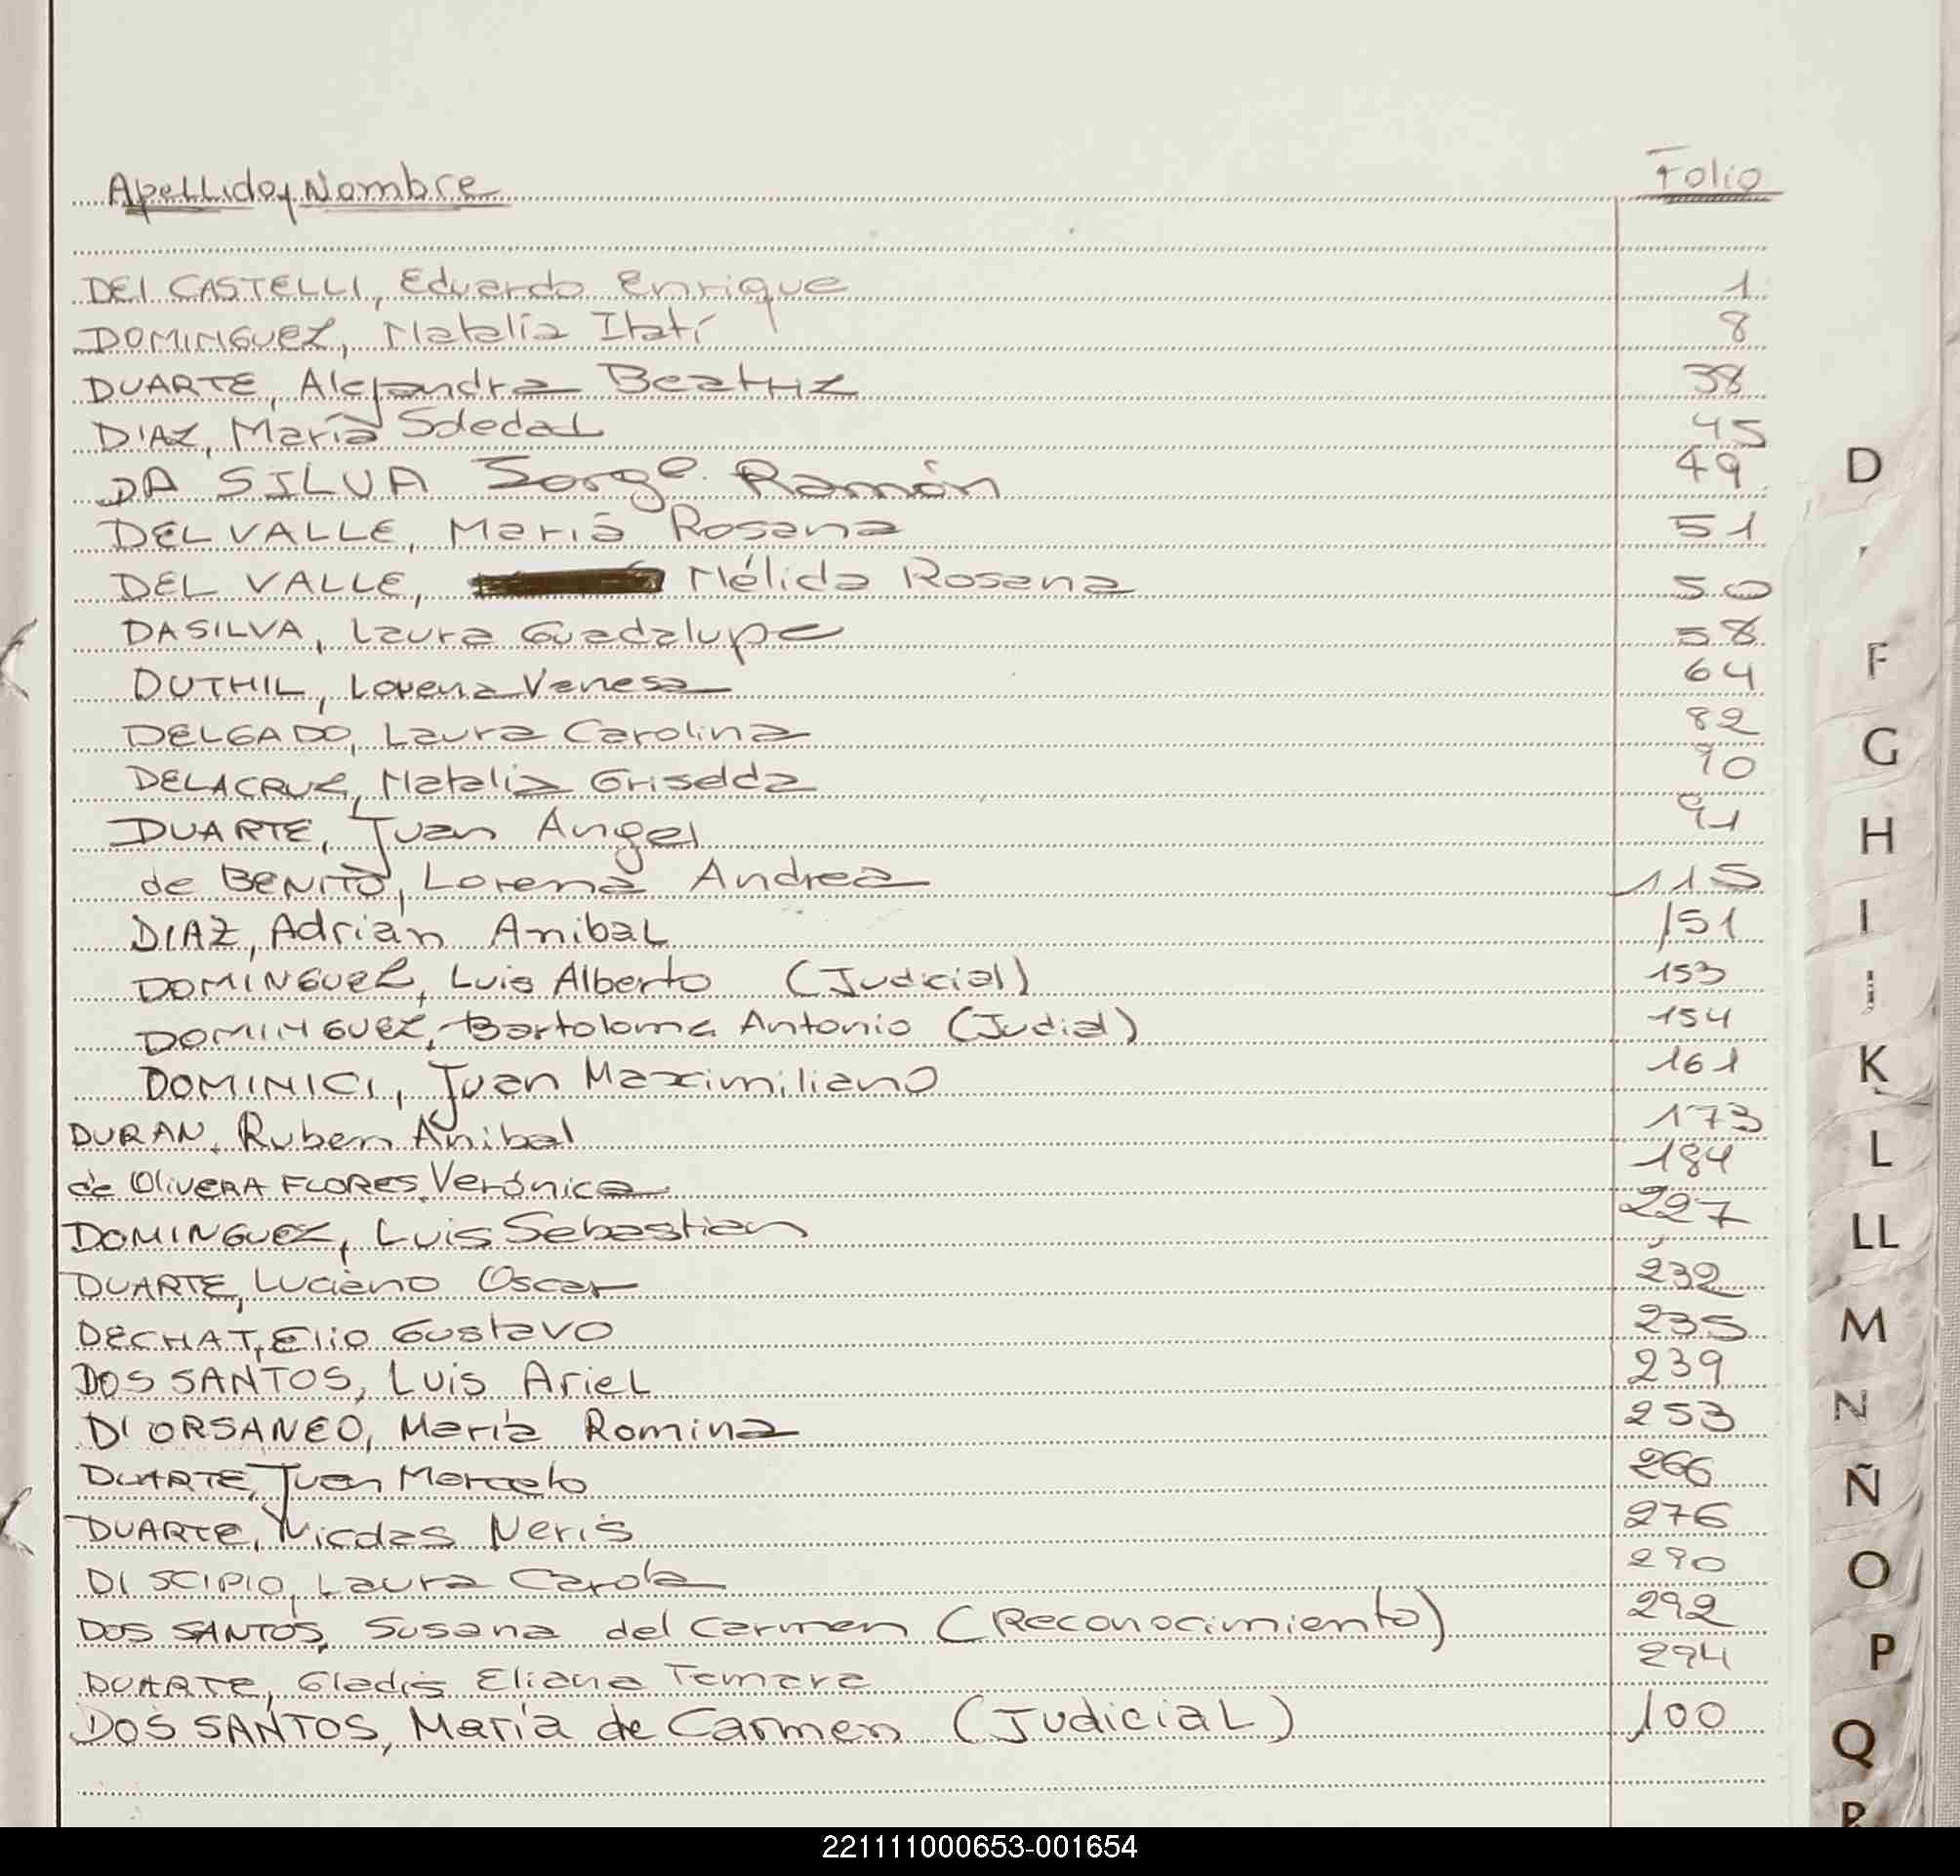 Apellido y Nombre Folio
DEI CASTELLI, Eduardo Enrique 1
DOMINGUEZ, Natalia Itatí 8
DUARTE, Alejandra Beatriz 38
DIAZ, María Soledad 45
DA SILVA Jorge Ramón 49
DEL VALLE, María Rosana 51
DEL VALLE, Nélida Rosana 50
DA SILVA, Laura Guadalupe 58
DUTHIL, Lorena Vanesa 64
DELGADO, Laura Carolina 82
DELACRUZ, Natalia Griselda 90
DUARTE, Juan Angel 91
de BENITO, Lorena Andrea 115
DIAZ, Adrián Anibal 151
DOMINGUEZ, Luis Alberto (Judicial) 153
DOMINGUEZ, Bartolome Antonio (Judial) 154
DOMINICI, Juan Maximiliano 161
DURAN, Ruben Anibal 173
de OLIVERA FLORES, Verónica 184
DOMINGUEZ, Luis Sebastian 227
DUARTE, Luciano Oscar 232
DECHAT, Elio Gustavo 235
DOS SANTOS, Luis Ariel 239
DI ORSANEO, María Romina 253
DUARTE, Juan Marcelo 266
DUARTE, Nicolas Neris 276
DI SCIPIO, Laura Carola 290
DOS SANTOS, Susana del Carmen (Reconocimiento) 292
DUARTE, Gladis Eliana Tamara 294
DOS SANTOS, María de Carmen (Judicial) 100
D
F
G
H
I
J
K
L
LL
M
N
Ñ
O
P
Q
R
221111000653-001654